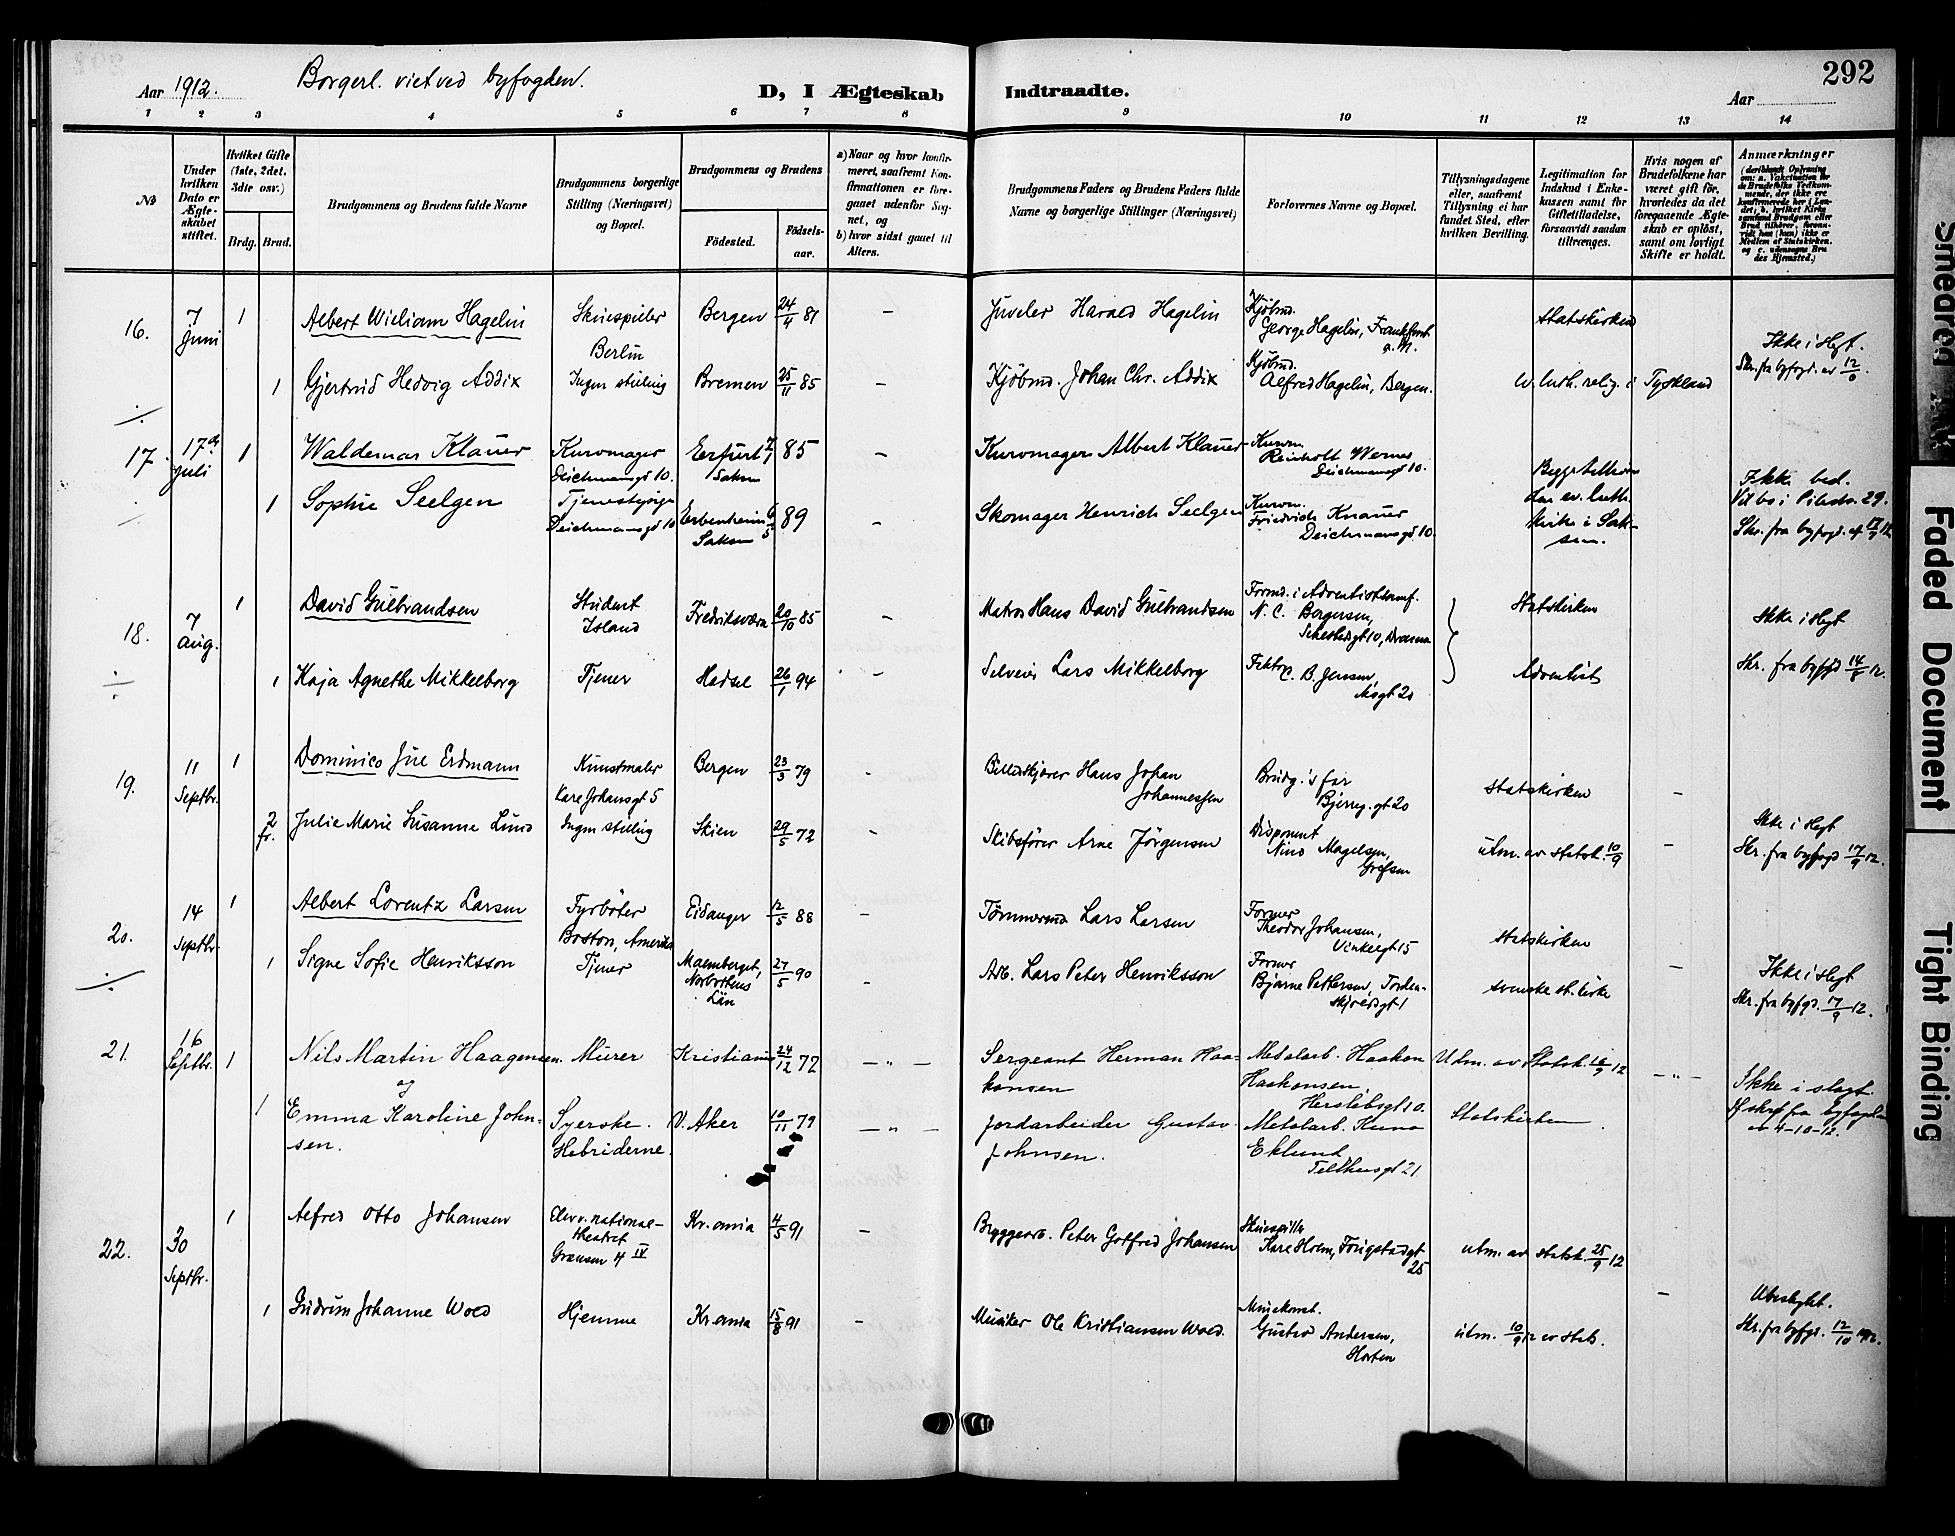 292
Aar 1912. Borgerl. viet ved byfogden.
D, I Ægteskab Indtraadte.
Aar
1 2 3 4 5 6 7 8 9 10 11 12 13 14
No
Under hvilken Dato er Ægteskabet stiftet.
Hvilket Gifte (1ste, 2det, 3die osv.)
Brdg. Brud.
Brudgommens og Brudens fulde Navne
Brudgommens borgerlige Stilling (Næringsvei) og Bopæl.
Brudgommens og Brudens
Fødested. Fødselsaar.
a) Naar og hvor konfirmeret, saafremt Konfirmationen er foregaaet udenfor Sognet, og
b) hvor sidst gaaet til Alters.
Brudgommens Faders og Brudens Faders fulde Navne og borgerlige Stillinger (Næringsvei)
Forlovernes Navne og Bopæl.
Tillysningsdagene eller, saafremt Tillysning ei har fundet Sted, efter hvilken Bevilling.
Legitimation for Indskud i Enkekassen samt for Giftetilladelse, forsaavidt saadan tiltrænges.
Hvis nogen af Brudefolkene har været gift før, hvorledes da det foregaaende Ægteskab er opløst, samt om lovligt Skifte er holdt.
Anmærkninger
16. 7 Juni 1 Albert William Hagelin Skuespiller Berlin Bergen 24/4 81 – Juveler Harald Hagelin Kjöbmd. George Hagelin, Frankfurt a. M. Statskirken
1 Gjertrud Hedvig Addix Ingen stilling Bremen 25/11 85 – Kjöbmd. Johan Chr. Addix Kjöbmd. Alfred Hagelin, Bergen. ev. luth. relig. i Tyskland
Ikke i slegt. Skr. fra byfogd. av 12/6.
17. 17de Juli 1 Waldemar Klauer Kurvmager Deichmansgd 10. Erfurt Saksen 7/1 85 – Kurvmager Albert Klauer Kurvm. Reinholt Werner Deichmansgd 10.
1 Sophie Seelgen Tjenestepige Deichmansgd 10 Erbenheim Saksen 6/5 89 – Skomager Henrich Seelgen Kurvm. Friedrich Knauer Deichmansgd. 10.
Begge tilhører den ev. luth. kirke i Saksen.
Ikke besl. Vil bo i Pilestr. 29. Skr. fra byfogd. af
18. 7 Aug. 1 David Gulbrandsen Student Island Fredriksværn 20/10 85 – Matros Hans David Gulbrandsen Formd. i Adventistsamf. N. C. Bergersen, Drammen Statskirken
1 Kaja Agnethe Mikkelborg Tjener Hadsel 26/1 94 – Selveier Lars Mikkelborg C. B. Jensen, Akersgt 20 Adventist
Ikke i slegt Skr. fra byfogd 14/8 12.
19. 11 Septbr. 1 Dominico Jul Erdmann Kunstmaler Karl Johansgt 5 Bergen 23/3 79 – Billedskjærer Hans Johan Johannessen Brudg.'s far Bjerreg. gt 20 Statskirken –
2 fr. Julie Marie Susanne Lund Ingen stilling Skien 29/5 72 – Skibsfører Arne Jörgensen Disponent Nils Magelsen, Grefsen utm. av statsk. 10/9 –
Ikke i slegt Skr. fra byfogd 17/9 12.
20. 14 Septbr. 1 Albert Lorentz Larsen Fyrböter Boston, Amerika Eidanger 12/5 88 – Tömmermd Lars Larsen Former Theodor Johansen, Vinkelgt 15 Statskirken
1 Signe Sofie Henriksson Tjener Malmberget, Norbottens Län 27/5 90 – Arb. Lars Peter Henriksson Former Bjarne Pettersen, Tordenskjoldsgt 1 svenske st. kirke –
Ikke i slegt Skr. fra byfgd. 17/9 12.
21. 16 Septbr. 1 Nils Martin Haagensen. og Murer Kristiania 24/12 77 – " – Sergeant Herman Haakonsen Metalarb. Haakon Haakonsen, Herslebsgt 10. Utm. av Statsk. 16/9 12 – " –
1 Emma Karoline Johnsen. Syerske. Hebriderne. V. Aker 10/11 79 – " – Jordarbeider Gustav Johnsen. Metalarb. Kuno Eklund Telthusgt 21 Statskirken.
Ikke i slegt. Skr. fra byfogden av 4-10-12.
22. 30 Septbr. 1 Alfred Otto Johansen Elev v. nationaltheatret Grænsen 4 IV Kr.ania 4/5 91 – Byggearb. Peter Gotfred Johansen Skuespiller Karl Holm, Fougstadgt 25 utm. av statsk. 25/9 12
1 Gudrun Johanne Wold Hjemme Kr.ania 15/8 91 – Musiker Ole Kristiansen Wold. Gustav Andersen, Horten utm. 10/9 12 av stats. –
Ubeslegtet. Skr. fra byfgd. 12/10 1912.
Smeared Ink
Faded Document
Tight Binding